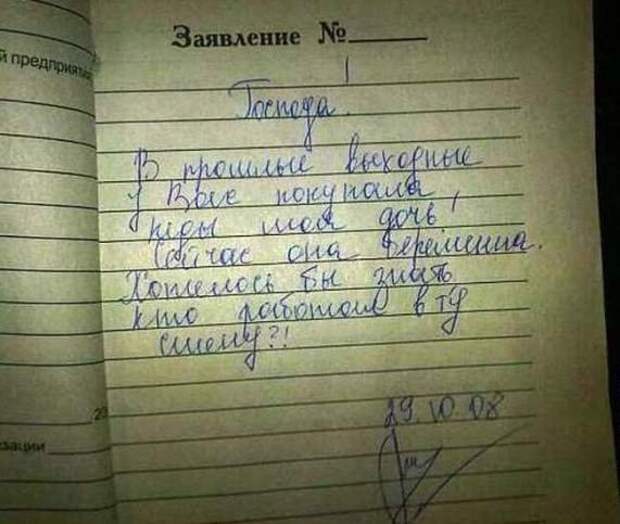 Заявление №
й предприятия
Господа!
В прошлые выходные
у Вас покупала
кеды моя дочь!
Сейчас она беременна.
Хотелось бы знать,
кто работал в ту
смену?!
29.10.08
20
зации